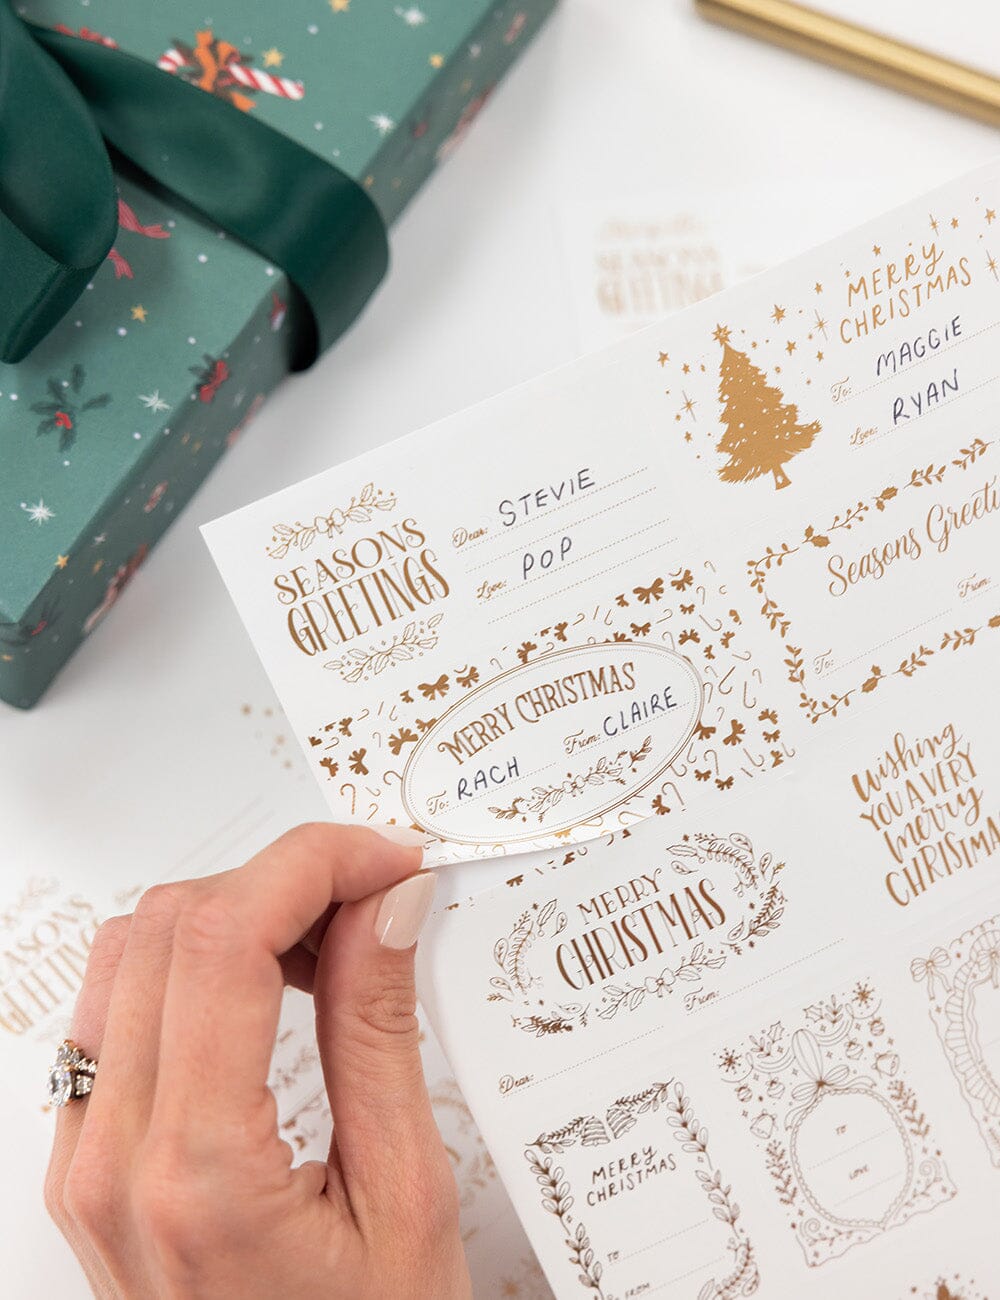 SEASONS
GREETINGS
MERRY
CHRISTMAS
To: MAGGIE
Love: RYAN
SEASONS
GREETINGS
Dear: STEVIE
Love: POP
Seasons Greeti
From:
To:
MERRY CHRISTMAS
To: RACH From: CLAIRE
Wishing
YOU A VERY
merry
CHRISTMA
MERRY
CHRISTMAS
From:
Dear:
MERRY
CHRISTMAS
TO
FROM
TO
LOVE
EASONS
GREETING